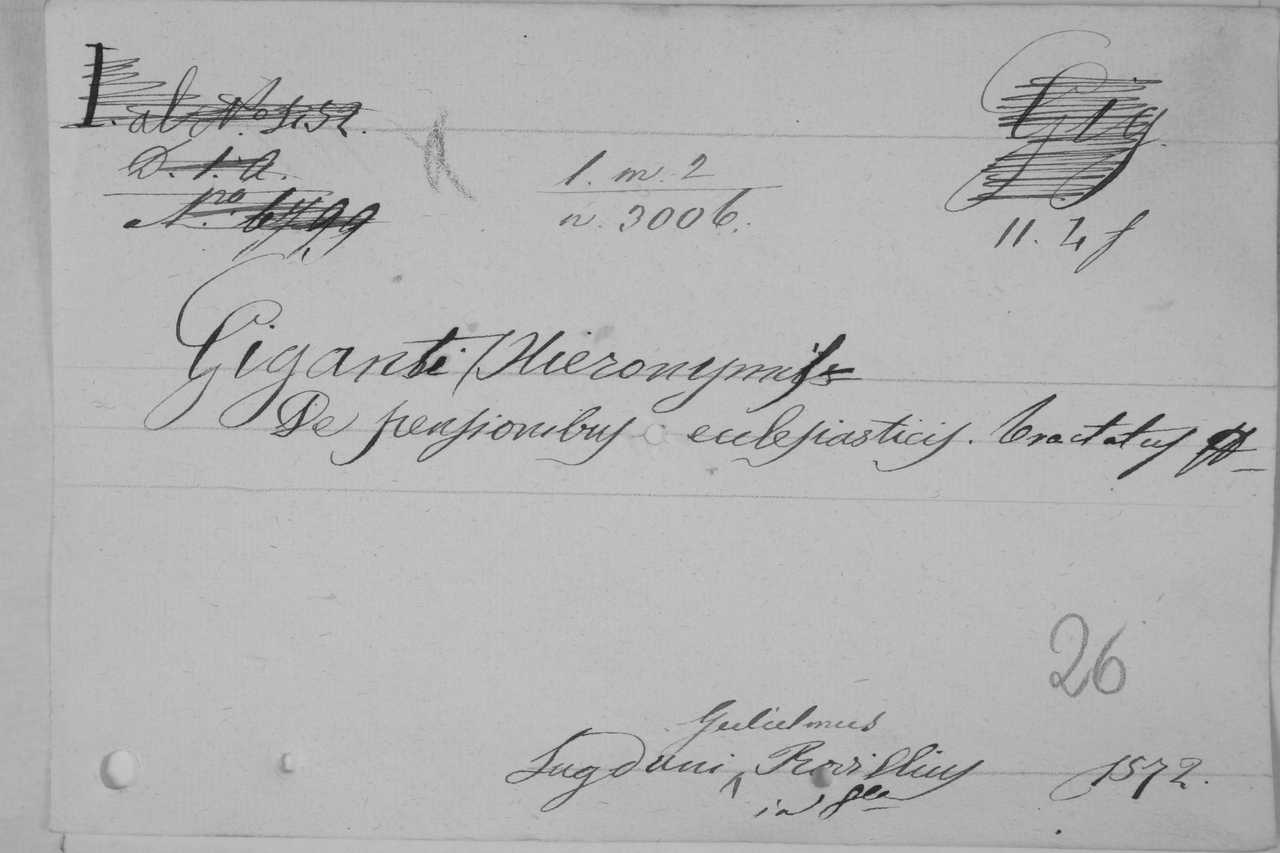 I. al. No. 1152.
D. 1. a.
No. 6799
1. m. 2
n. 3006.
Gig.
11. 4 f
Giganti (Hieronymus
De pensionibus ecclesiasticis. Tractatus
26
Gulielmus
Lugduni Rovillius 1572.
in 8vo